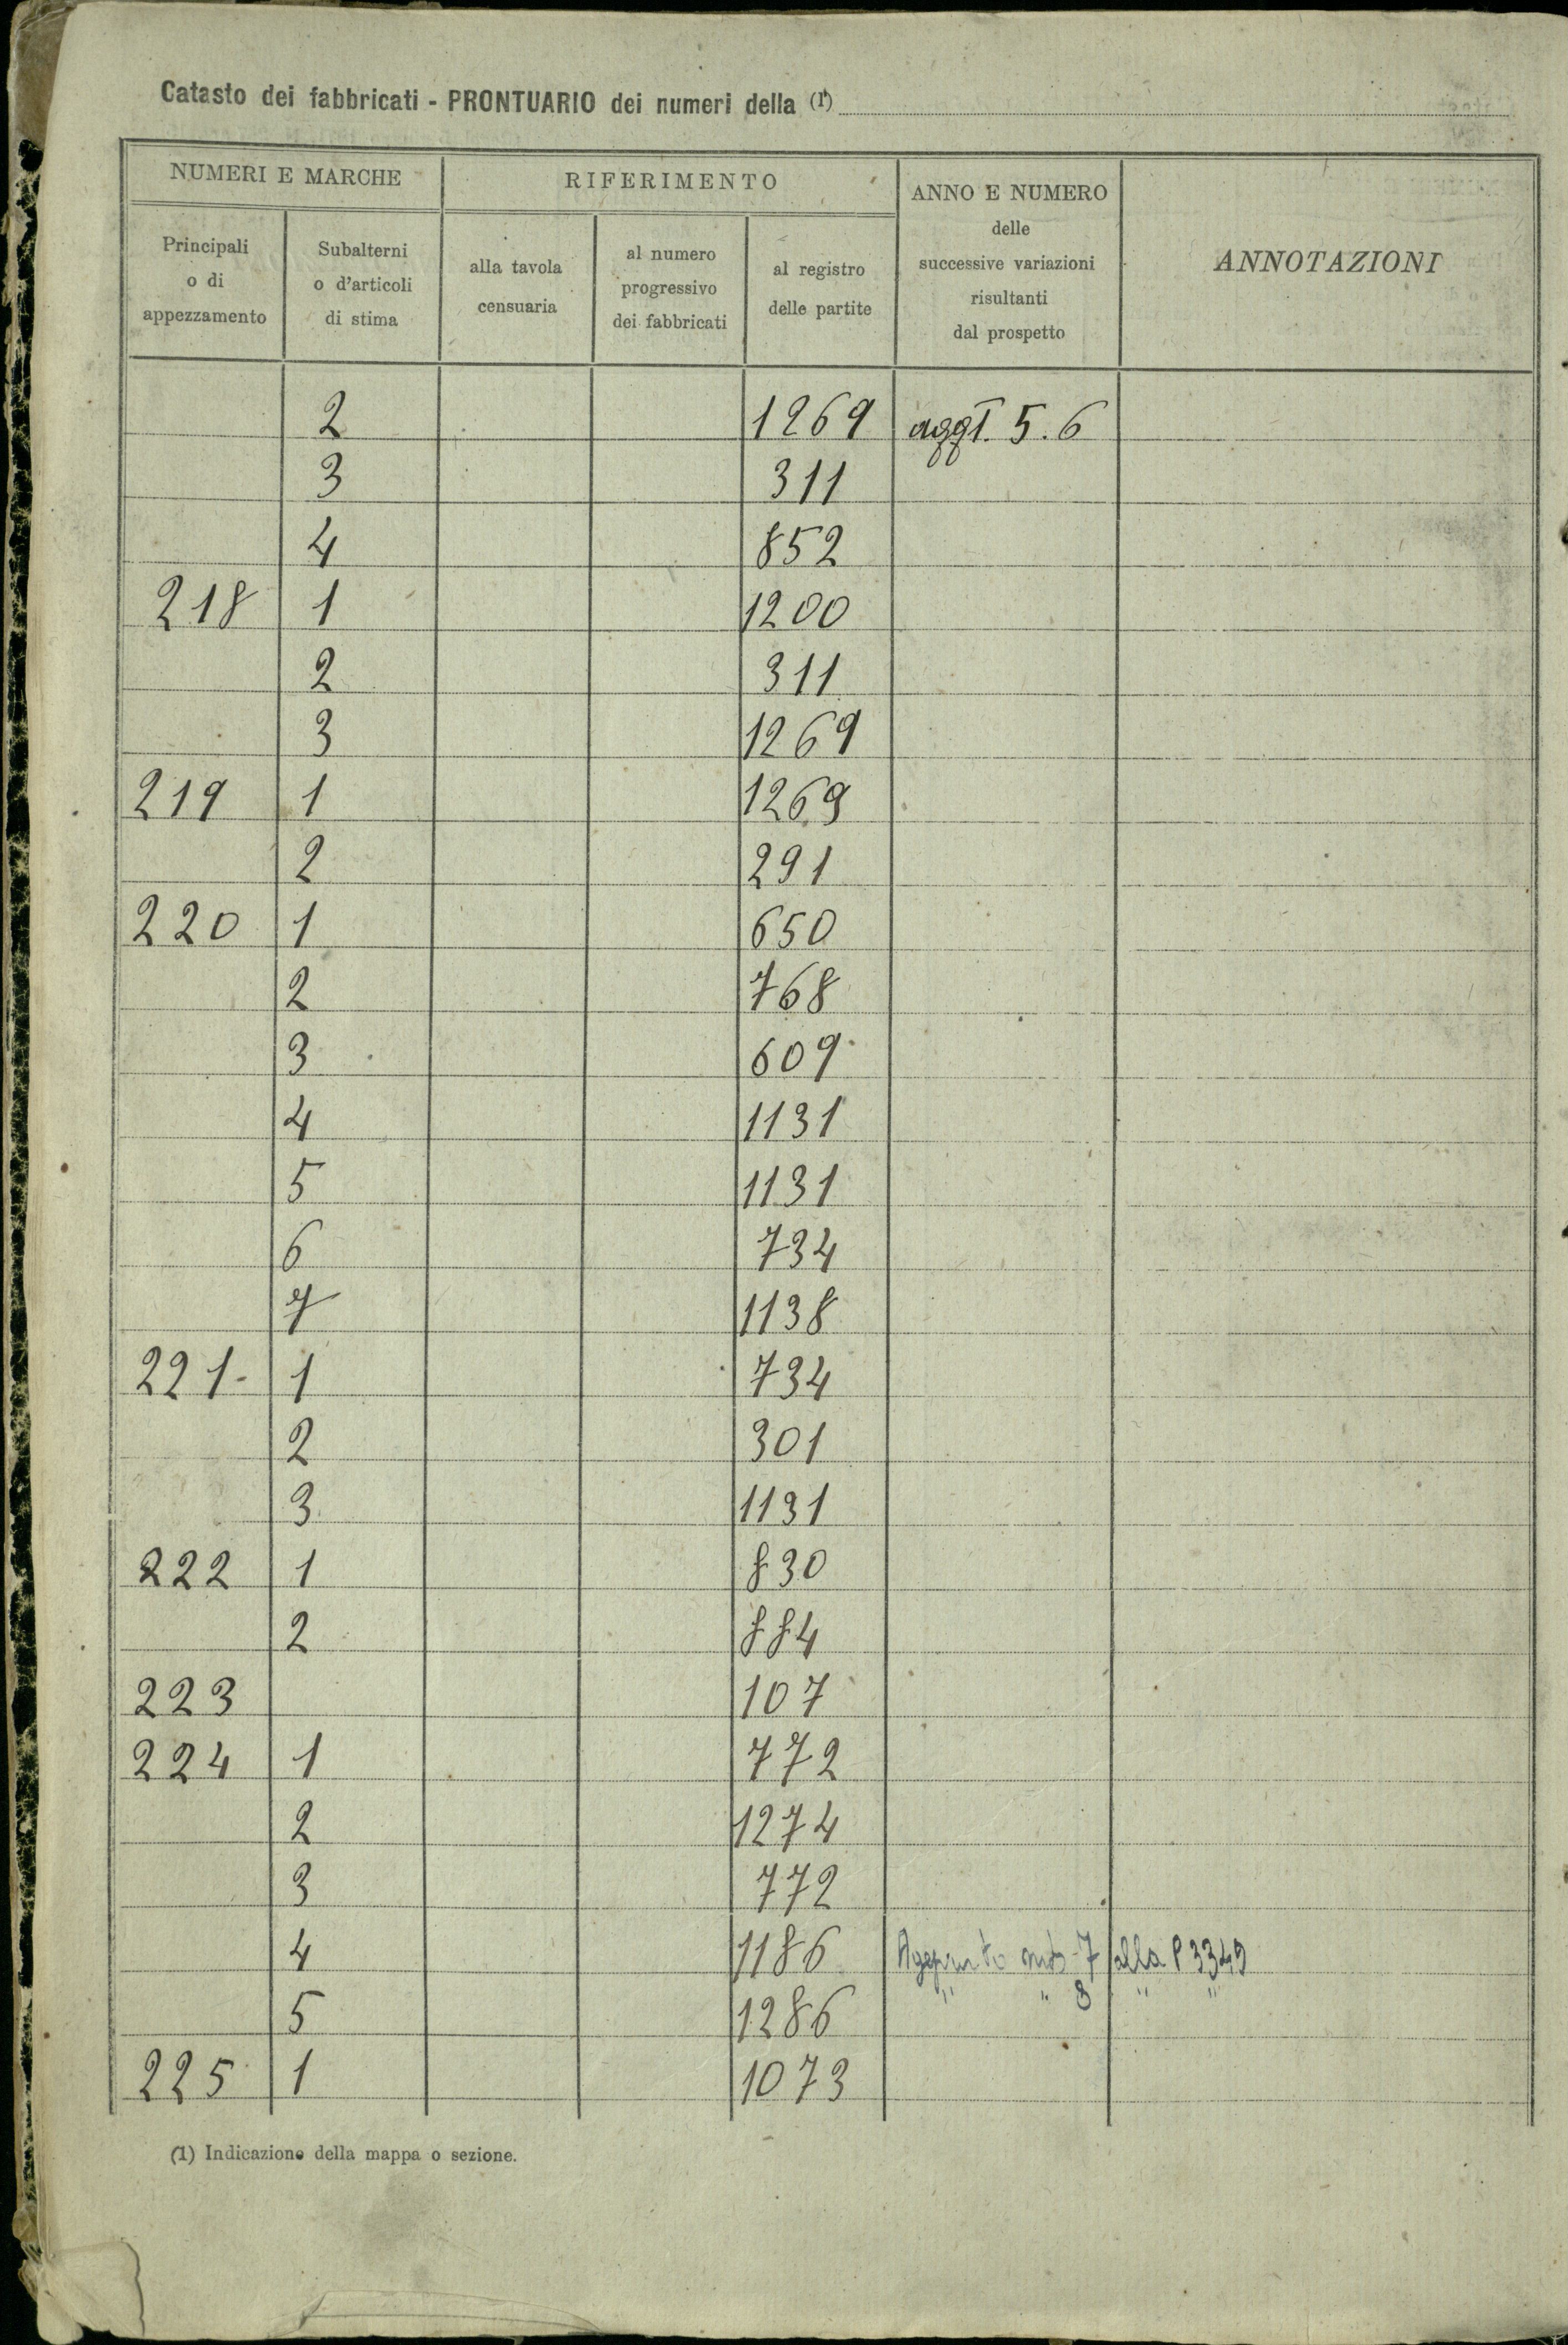 Catasto dei fabbricati - PRONTUARIO dei numeri della (1)
NUMERI E MARCHE RIFERIMENTO ANNO E NUMERO delle successive variazioni risultanti dal prospetto ANNOTAZIONI
Principali o di appezzamento Subalterni o d'articoli di stima alla tavola censuaria al numero progressivo dei fabbricati al registro delle partite
2 1269 aggt. 5.6
3 311
4 852
218 1 1200
2 311
3 1269
219 1 1269
2 291
220 1 650
2 768
3 609
4 1131
5 1131
6 734
7 1138
221- 1 734
2 301
3 1131
222 1 830
2 884
223 107
224 1 772
2 1274
3 772
4 1186 Aggiunto sub 7 alla P 3349
" " 8 " "
5 1286
225 1 1073
(1) Indicazione della mappa o sezione.